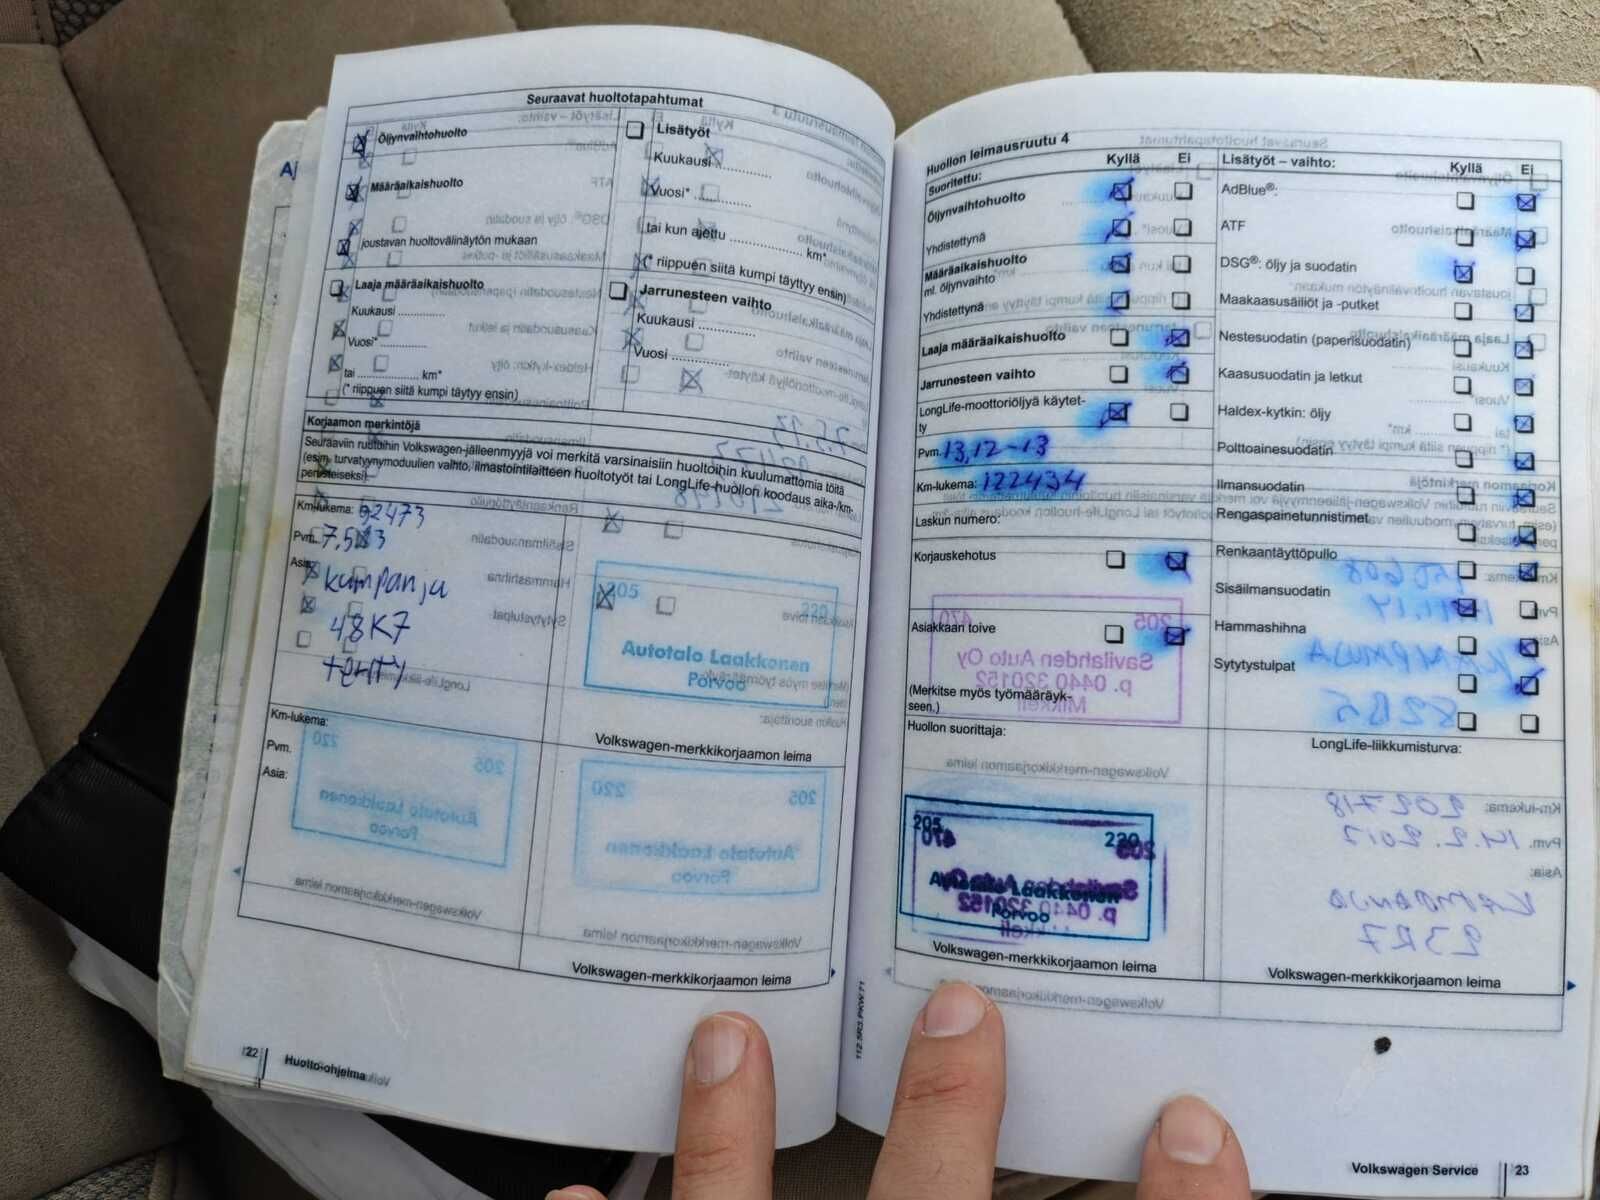 Seuraavat huoltotapahtumat
Öljynvaihtohuolto
Määräaikaishuolto
joustavan huoltovälinäytön mukaan
Laaja määräaikaishuolto
Kuukausi ............
Vuosi* ............
tai .................. km*
(* riippuen siitä kumpi täytyy ensin)
Lisätyöt
Kuukausi ...............
Vuosi* ...............
tai kun ajettu .................. km*
(* riippuen siitä kumpi täytyy ensin)
Jarrunesteen vaihto
Kuukausi ...............
Vuosi ...............
Korjaamon merkintöjä
Seuraaviin rustuihin Volkswagen-jälleenmyyjä voi merkitä varsinaisiin huoltoihin kuulumattomia töitä
(esim. turvatyynymoduulien vaihto, ilmastointilaitteen huoltotyöt tai LongLife-huollon koodaus aika-/km-
perusteiseksi)
Km-lukema: 92473
Pvm. 7.5.13
Asia:
kampanju
48K7
tehty
205 220
Autotalo Laakkonen
Porvoo
Volkswagen-merkkikorjaamon leima
Km-lukema:
Pvm.
Asia:
Volkswagen-merkkikorjaamon leima
22 Huolto-ohjelma
Huollon leimausruutu 4
Suoritettu: Kyllä Ei
Öljynvaihtohuolto
Yhdistettynä
Määräaikaishuolto
ml. öljynvaihto
Yhdistettynä
Laaja määräaikaishuolto
Jarrunesteen vaihto
LongLife-moottoriöljyä käytet-
ty
Pvm. 13.12-13
Km-lukema: 122434
Laskun numero:
Korjauskehotus
Asiakkaan toive
(Merkitse myös työmääräyk-
seen.)
Huollon suorittaja:
205 220
Autotalo Laakkonen
Porvoo
Volkswagen-merkkikorjaamon leima
Lisätyöt – vaihto: Kyllä Ei
AdBlue®:
ATF
DSG®: öljy ja suodatin
Maakaasusäiliöt ja -putket
Nestesuodatin (paperisuodatin)
Kaasusuodatin ja letkut
Haldex-kytkin: öljy
Polttoainesuodatin
Ilmansuodatin
Rengaspainetunnistimet
Renkaantäyttöpullo
Sisäilmansuodatin
Hammashihna
Sytytystulpat
LongLife-liikkumisturva:
Volkswagen-merkkikorjaamon leima
112.5R3.PKW.71
Volkswagen Service 23